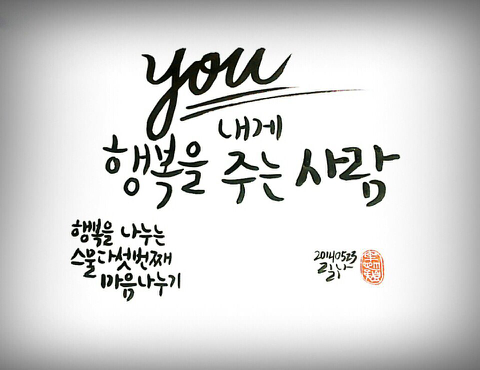 you
내게
행복을 주는 사람
행복을 나누는
스물다섯번째
마음나누기
20140523